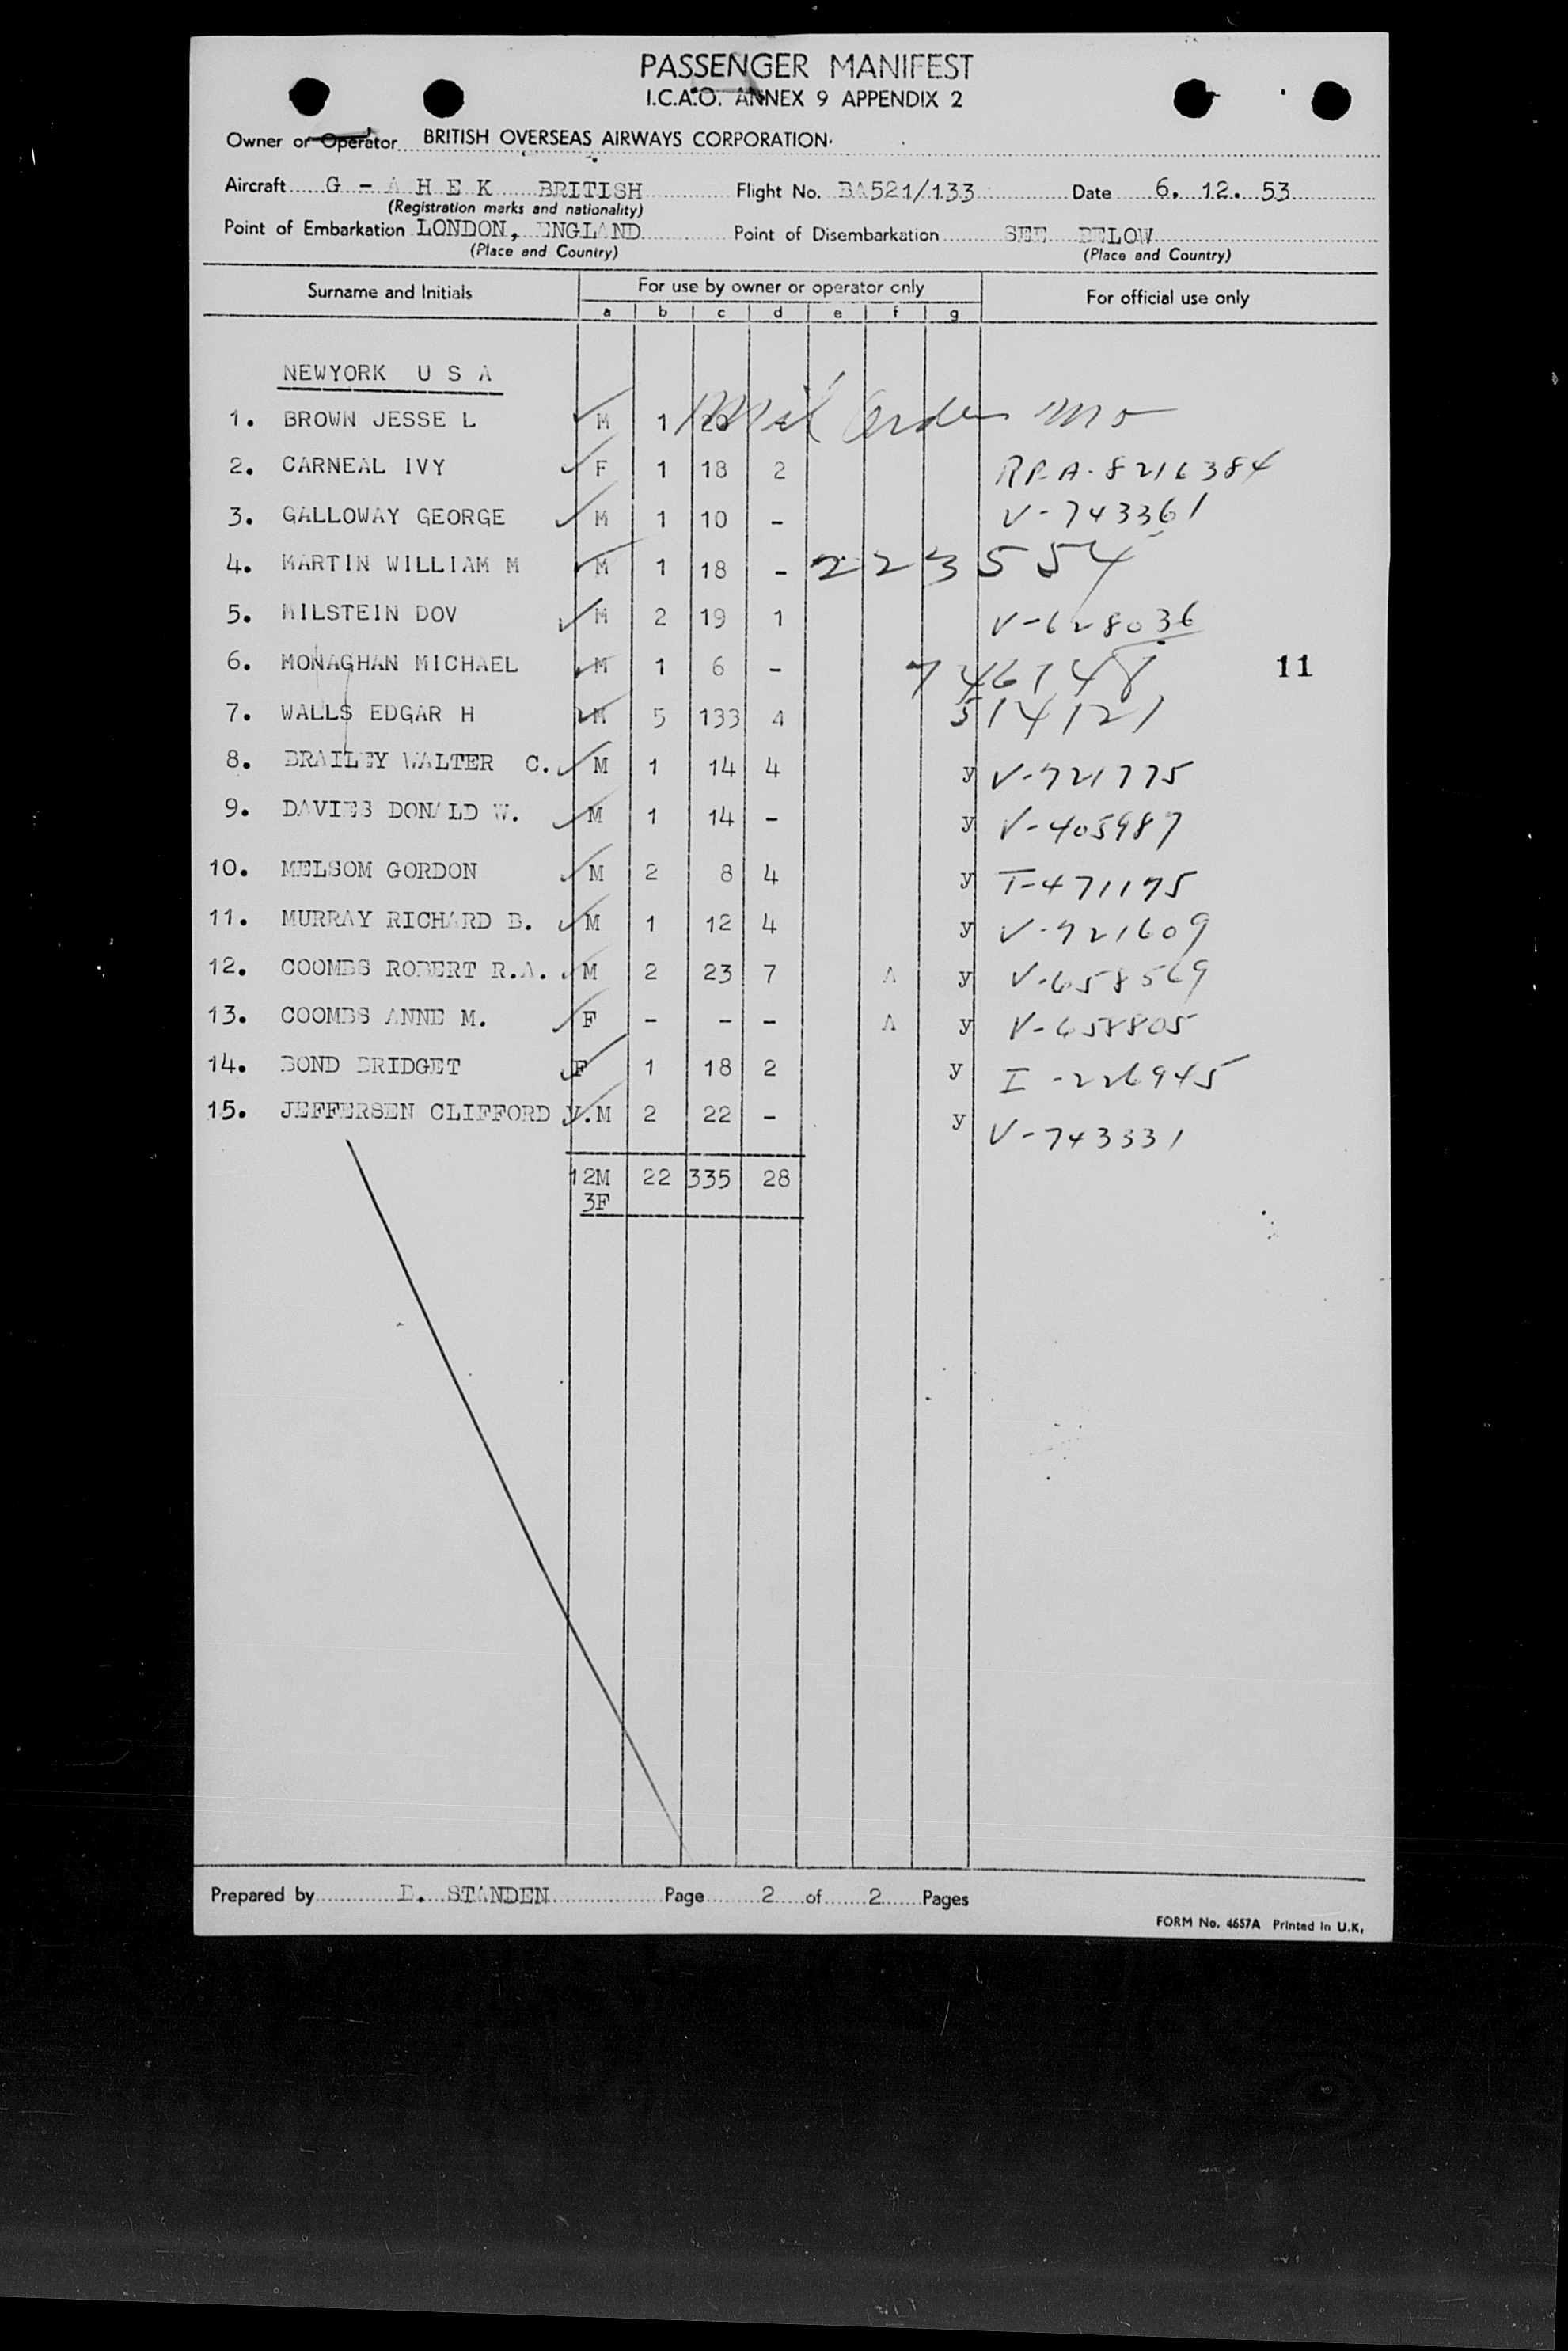 PASSENGER MANIFEST
I.C.A.O. ANNEX 9 APPENDIX 2
Owner or Operator BRITISH OVERSEAS AIRWAYS CORPORATION.
Aircraft G - A H E K BRITISH Flight No. BA521/133 Date 6. 12. 53
(Registration marks and nationality)
Point of Embarkation LONDON, ENGLAND Point of Disembarkation SEE BELOW
(Place and Country) (Place and Country)
Surname and Initials For use by owner or operator only For official use only
a b c d e f g
NEWYORK U S A
1. BROWN JESSE L M 1 Mil Orders
2. CARNEAL IVY F 1 18 2 RP-A-8216384
3. GALLOWAY GEORGE M 1 10 - V-743361
4. MARTIN WILLIAM M M 1 18 - 223554
5. MILSTEIN DOV M 2 19 1 V-628036
6. MONAGHAN MICHAEL M 1 6 - 746748 11
7. WALLS EDGAR H M 5 133 4 514121
8. BRAILEY WALTER C. M 1 14 4 y V-721775
9. DAVIES DONALD W. M 1 14 - y V-405987
10. MELSOM GORDON M 2 8 4 y T-471175
11. MURRAY RICHARD B. M 1 12 4 y V-721609
12. COOMBS ROBERT R.A. M 2 23 7 A y V-658569
13. COOMBS ANNE M. F - - - A y V-658805
14. BOND BRIDGET F 1 18 2 y I-226945
15. JEFFERSEN CLIFFORD V. M 2 22 - y V-743331
12M 22 335 28
3F
Prepared by D. STANDEN Page 2 of 2 Pages
FORM No. 4657A Printed in U.K.